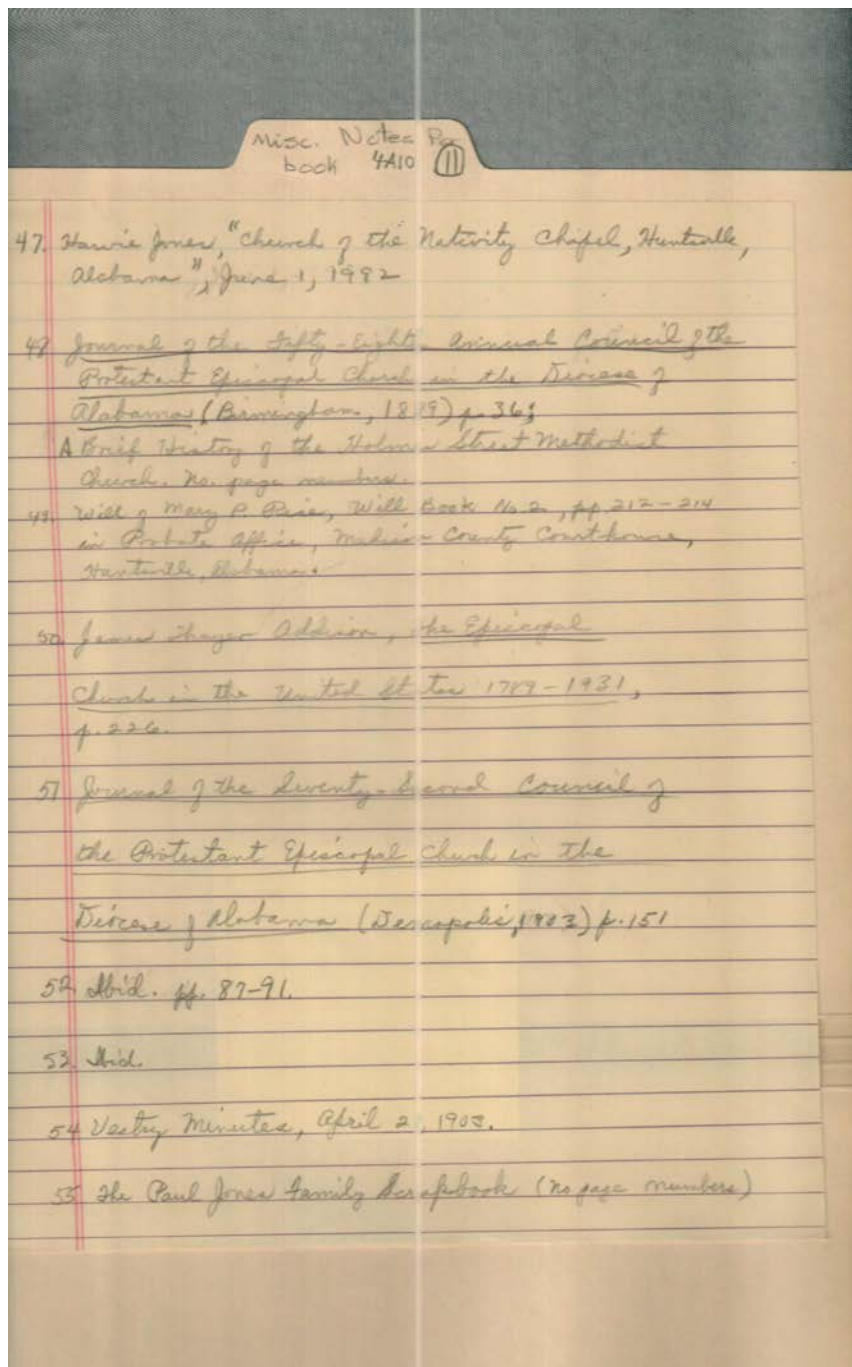 Misc. Notes For
book 4A10 11
47. Harvie Jones, "Church of the Nativity Chapel, Huntsville,
Alabama", June 1, 1992
48 Journal of the Fifty-Eighth Annual Council of the
Protestant Episcopal Church in the Diocese of
Alabama (Birmingham, 1889) p. 36;
A Brief History of the Holmes Street Methodist
Church. No. page numbers.
49. Will of Mary P. Rice, Will Book No. 2, pp. 212-214
in Probate Office, Madison County Courthouse,
Huntsville, Alabama.
50. James Thayer Addison, The Episcopal
Church in the United States 1789-1931,
p. 226.
51 Journal of the Seventy-Second Council of
the Protestant Episcopal Church in the
Diocese of Alabama (Demopolis, 1903) p. 151
52. Ibid. pp. 87-91.
53. Ibid.
54 Vestry Minutes, April 2, 1903.
55 The Paul Jones Family Scrapbook (no page numbers)